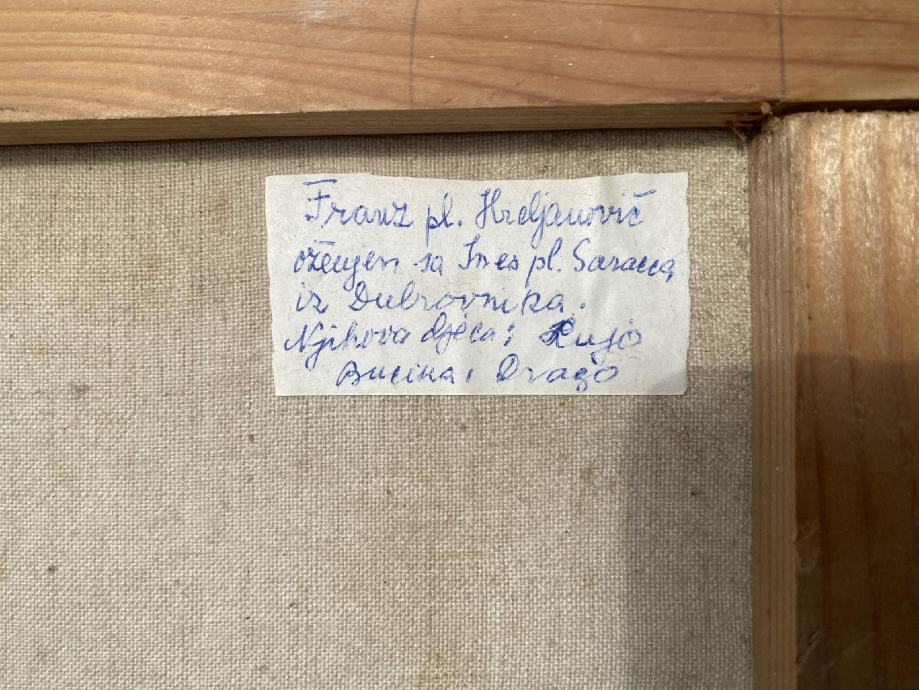 Franz pl. Hreljanović
oženjen sa Ines pl. Saraca,
iz Dubrovnika.
Njihova djeca: Lujo
Bucika, Drago